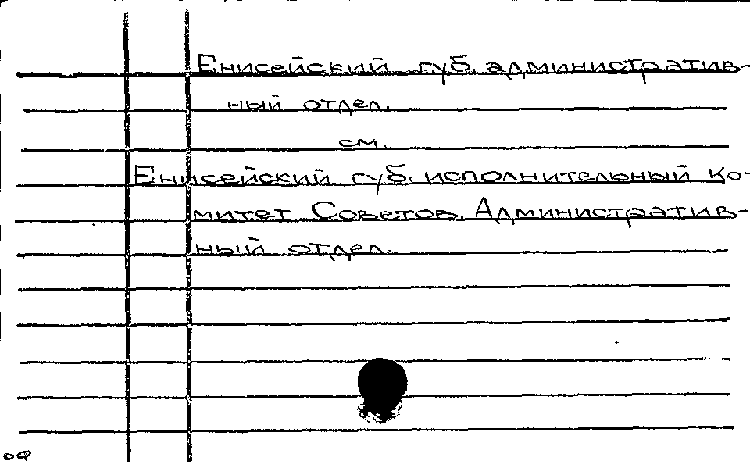 Енисейский губ. административ-
ный отдел.
см.
Енисейский губ. исполнительный ко-
митет Советов. Административ-
ный отдел.